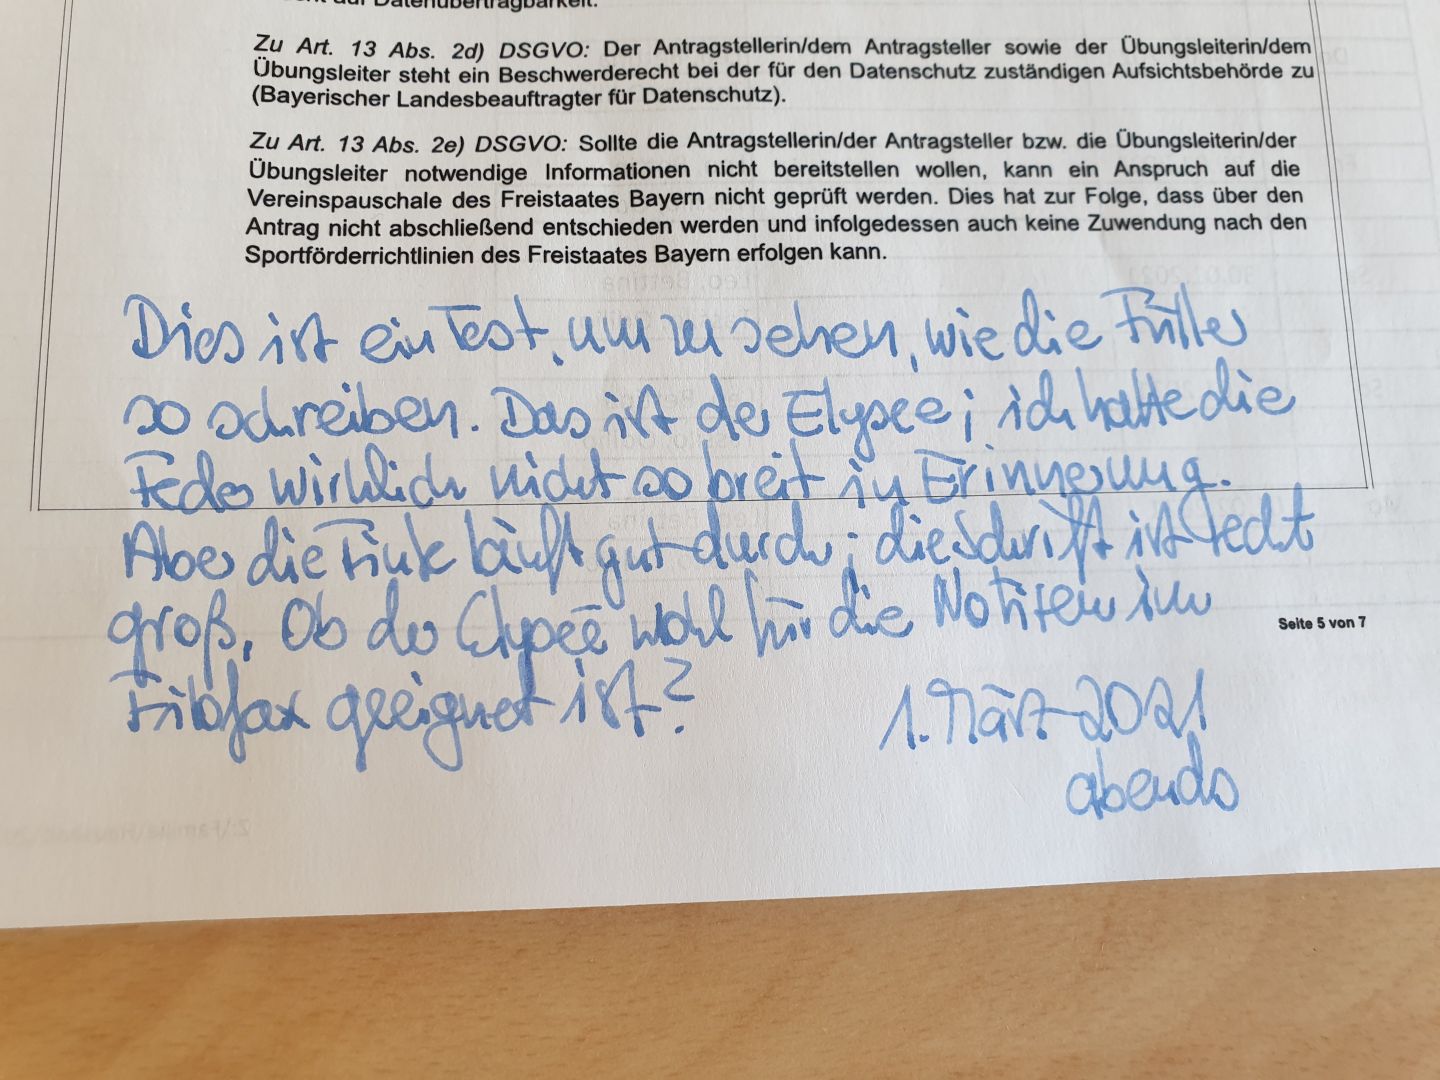 cht auf Datenübertragbarkeit.
Zu Art. 13 Abs. 2d) DSGVO: Der Antragstellerin/dem Antragsteller sowie der Übungsleiterin/dem
Übungsleiter steht ein Beschwerderecht bei der für den Datenschutz zuständigen Aufsichtsbehörde zu
(Bayerischer Landesbeauftragter für Datenschutz).
Zu Art. 13 Abs. 2e) DSGVO: Sollte die Antragstellerin/der Antragsteller bzw. die Übungsleiterin/der
Übungsleiter notwendige Informationen nicht bereitstellen wollen, kann ein Anspruch auf die
Vereinspauschale des Freistaates Bayern nicht geprüft werden. Dies hat zur Folge, dass über den
Antrag nicht abschließend entschieden werden und infolgedessen auch keine Zuwendung nach den
Sportförderrichtlinien des Freistaates Bayern erfolgen kann.
Dies ist ein Test, um zu sehen, wie die Füller
so schreiben. Das ist der Elysee; ich hatte die
Feder wirklich nicht so breit in Erinnerung.
Aber die Tinte läuft gut durch; die Schrift ist recht
groß. Ob der Elysée wohl für die Notizen im
Filofax geeignet ist?
Seite 5 von 7
1. März 2021
abends